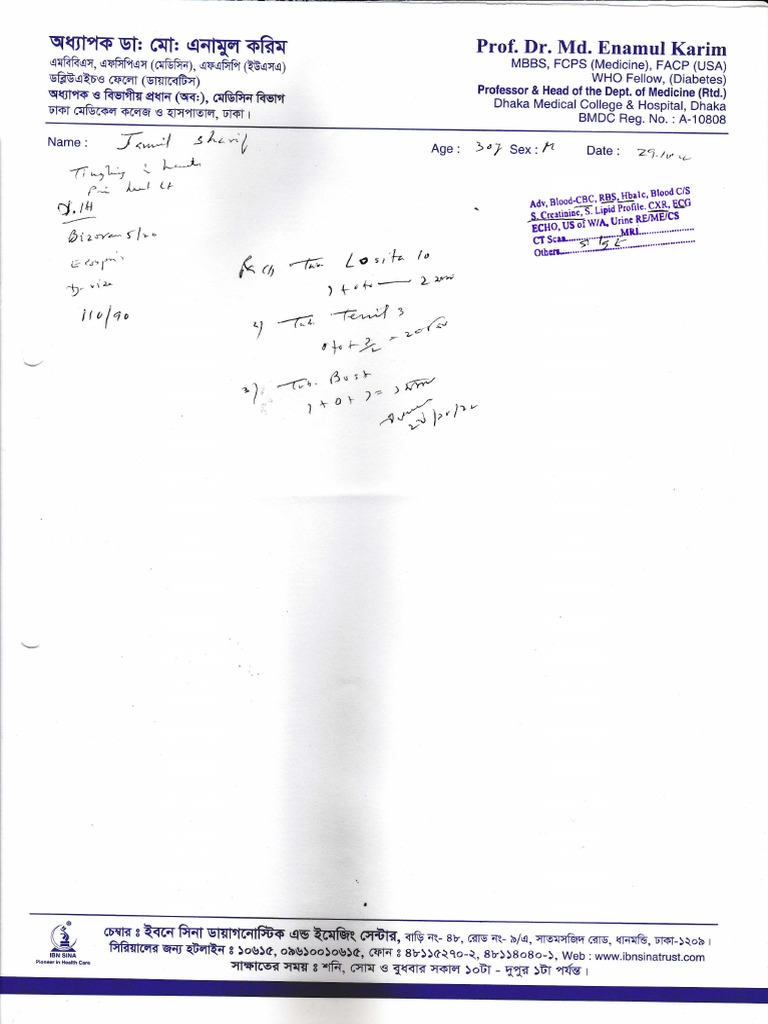 অধ্যাপক ডা: মো: এনামুল করিম
এমবিবিএস, এফসিপিএস (মেডিসিন), এফএসিপি (ইউএসএ)
ডব্লিউএইচও ফেলো (ডায়াবেটিস)
অধ্যাপক ও বিভাগীয় প্রধান (অব:), মেডিসিন বিভাগ
ঢাকা মেডিকেল কলেজ ও হাসপাতাল, ঢাকা।
Prof. Dr. Md. Enamul Karim
MBBS, FCPS (Medicine), FACP (USA)
WHO Fellow, (Diabetes)
Professor & Head of the Dept. of Medicine (Rtd.)
Dhaka Medical College & Hospital, Dhaka
BMDC Reg. No. : A-10808
Name : Jamil Sharif
Age : 30y Sex : M Date : 29.10
Tingling
Bizoran 5/20
110/90
Adv, Blood-CBC, RBS, Hba1c, Blood C/S
S. Creatinine, S. Lipid Profile, CXR, ECG
ECHO, US of W/A, Urine RE/ME/CS
CT Scan..................MRI..................
Others.......S. IgE..................
Tab. Losita 10
2) Tab.
3) Tab.
চেম্বার : ইবনে সিনা ডায়াগনোস্টিক এন্ড ইমেজিং সেন্টার, বাড়ি নং- ৪৮, রোড নং- ৯/এ, সাতমসজিদ রোড, ধানমন্ডি, ঢাকা-১২০৯।
সিরিয়ালের জন্য হটলাইন : ১০৬১৫, ০৯৬১০০১০৬১৫, ফোন : ৪৮১১৫২৭০-২, ৪৮১১৪০৪০-১, Web : www.ibnsinatrust.com
সাক্ষাতের সময় : শনি, সোম ও বুধবার সকাল ১০টা - দুপুর ১টা পর্যন্ত।
IBN SINA
Pioneer in Health Care